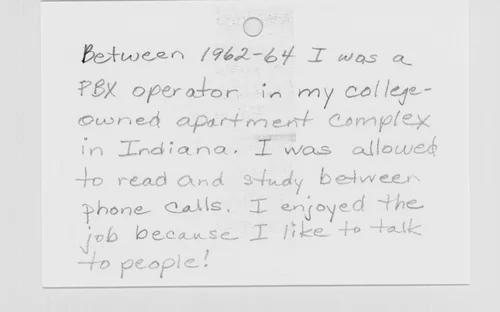 Between 1962-64 I was a
PBX operator in my college-
owned apartment complex
in Indiana. I was allowed
to read and study between
phone calls. I enjoyed the
job because I like to talk
to people!